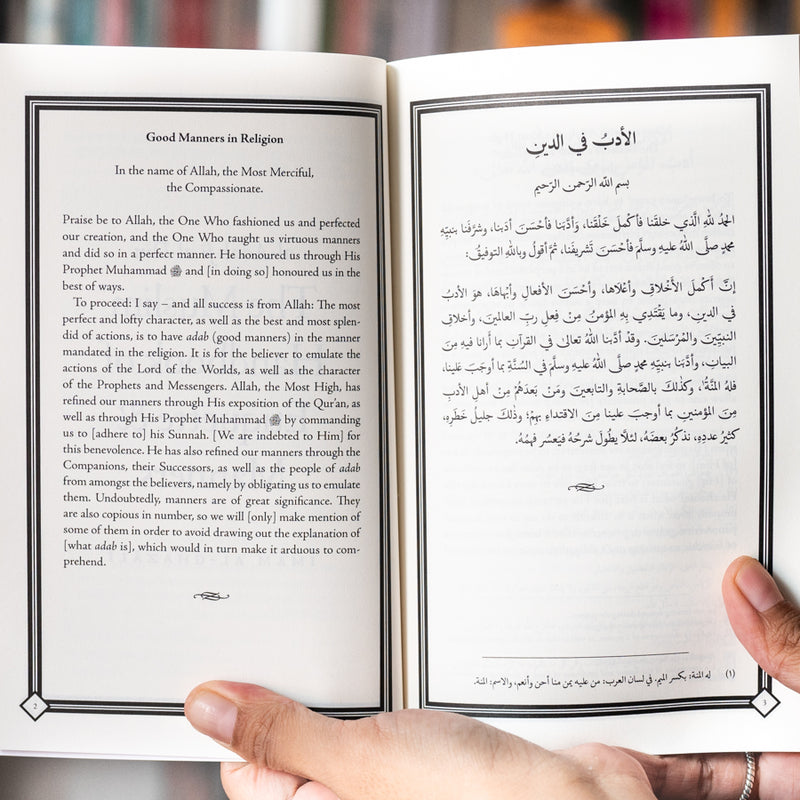 Good Manners in Religion
In the name of Allah, the Most Merciful,
the Compassionate.
Praise be to Allah, the One Who fashioned us and perfected
our creation, and the One Who taught us virtuous manners
and did so in a perfect manner. He honoured us through His
Prophet Muhammad ﷺ and [in doing so] honoured us in the
best of ways.
To proceed: I say – and all success is from Allah: The most
perfect and lofty character, as well as the best and most splen-
did of actions, is to have adab (good manners) in the manner
mandated in the religion. It is for the believer to emulate the
actions of the Lord of the Worlds, as well as the character
of the Prophets and Messengers. Allah, the Most High, has
refined our manners through His exposition of the Qur'an, as
well as through His Prophet Muhammad ﷺ by commanding
us to [adhere to] his Sunnah. [We are indebted to Him] for
this benevolence. He has also refined our manners through the
Companions, their Successors, as well as the people of adab
from amongst the believers, namely by obligating us to emulate
them. Undoubtedly, manners are of great significance. They
are also copious in number, so we will [only] make mention of
some of them in order to avoid drawing out the explanation of
[what adab is], which would in turn make it arduous to com-
prehend.
2
الأدبُ في الدينِ
بسم الله الرَحمن الرَحيم
الحمدُ للهِ الَّذي خلقَنا فأكملَ خَلْقَنا، وَأدَّبَنا فأحْسَن أدَبنا، وشرَّفَنا بنبيِّهِ
محمدٍ صلَّى اللهُ عليهِ وسلَّمَ فأحْسَن تَشريفَنا، ثمَّ أقولُ وباللهِ التوفيقُ:
إنَّ أكملَ الأخْلاقِ وأعْلاها، وأحْسَنَ الأفعالِ وأبْهاها، هوَ الأدبُ
في الدينِ، وما يَقْتدي بهِ المؤمنُ مِنْ فِعلِ ربِّ العالمينَ، وأخلاقِ
النبيِّينَ والمُرْسَلينَ. وقدْ أدَّبَنا اللهُ تعالى في القرآنِ بما أرانا فيهِ مِنَ
البيانِ، وأدَّبَنا بنبيِّهِ محمدٍ صلَّى اللهُ عليهِ وسلَّمَ في السُنَّةِ بما أوجَبَ عَلينا،
فلهُ المنَّةُ، وكذلكَ بالصَّحابةِ والتابعينَ ومَنْ بَعدَهُمْ مِنْ أهلِ الأدبِ
مِنَ المؤمنينِ بما أوجبَ علينا مِنَ الاقتداءِ بهِمْ؛ وذلكَ جليلٌ خَطَرِه،
كثيرٌ عددِهِ، نذكُرُ بعضَهُ، لئلَّا يطُولَ شرحُهُ فيَعسُر فهمُهُ.
(١) له المنة: بكسر الميم. في لسان العرب: من عليه يمن منا أحن وأنعم، والاسم: المنة.
3